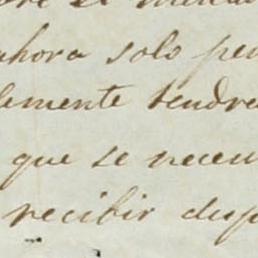 ahora solo pen
lemente tendre
que se necesi
recibir dup